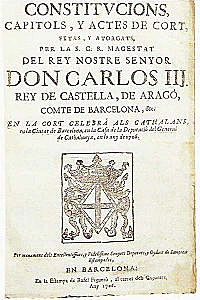 CONSTITVCIONS,
CAPITOLS, Y ACTES DE CORT,
FETAS, Y ATORGATS,
PER LA S. C. R. MAGESTAT
DEL REY NOSTRE SENYOR
DON CARLOS III.
REY DE CASTELLA, DE ARAGÓ,
COMTE DE BARCELONA, &c.
EN LA CORT CELEBRÁ ALS CATHALANS,
en la Ciutat de Barcelona, en la Casa de la Deputació del General
de Cathalunya, en lo any de 1706.
EN BARCELONA:
En la Estampa de Rafel Figueró,
Any 1706.